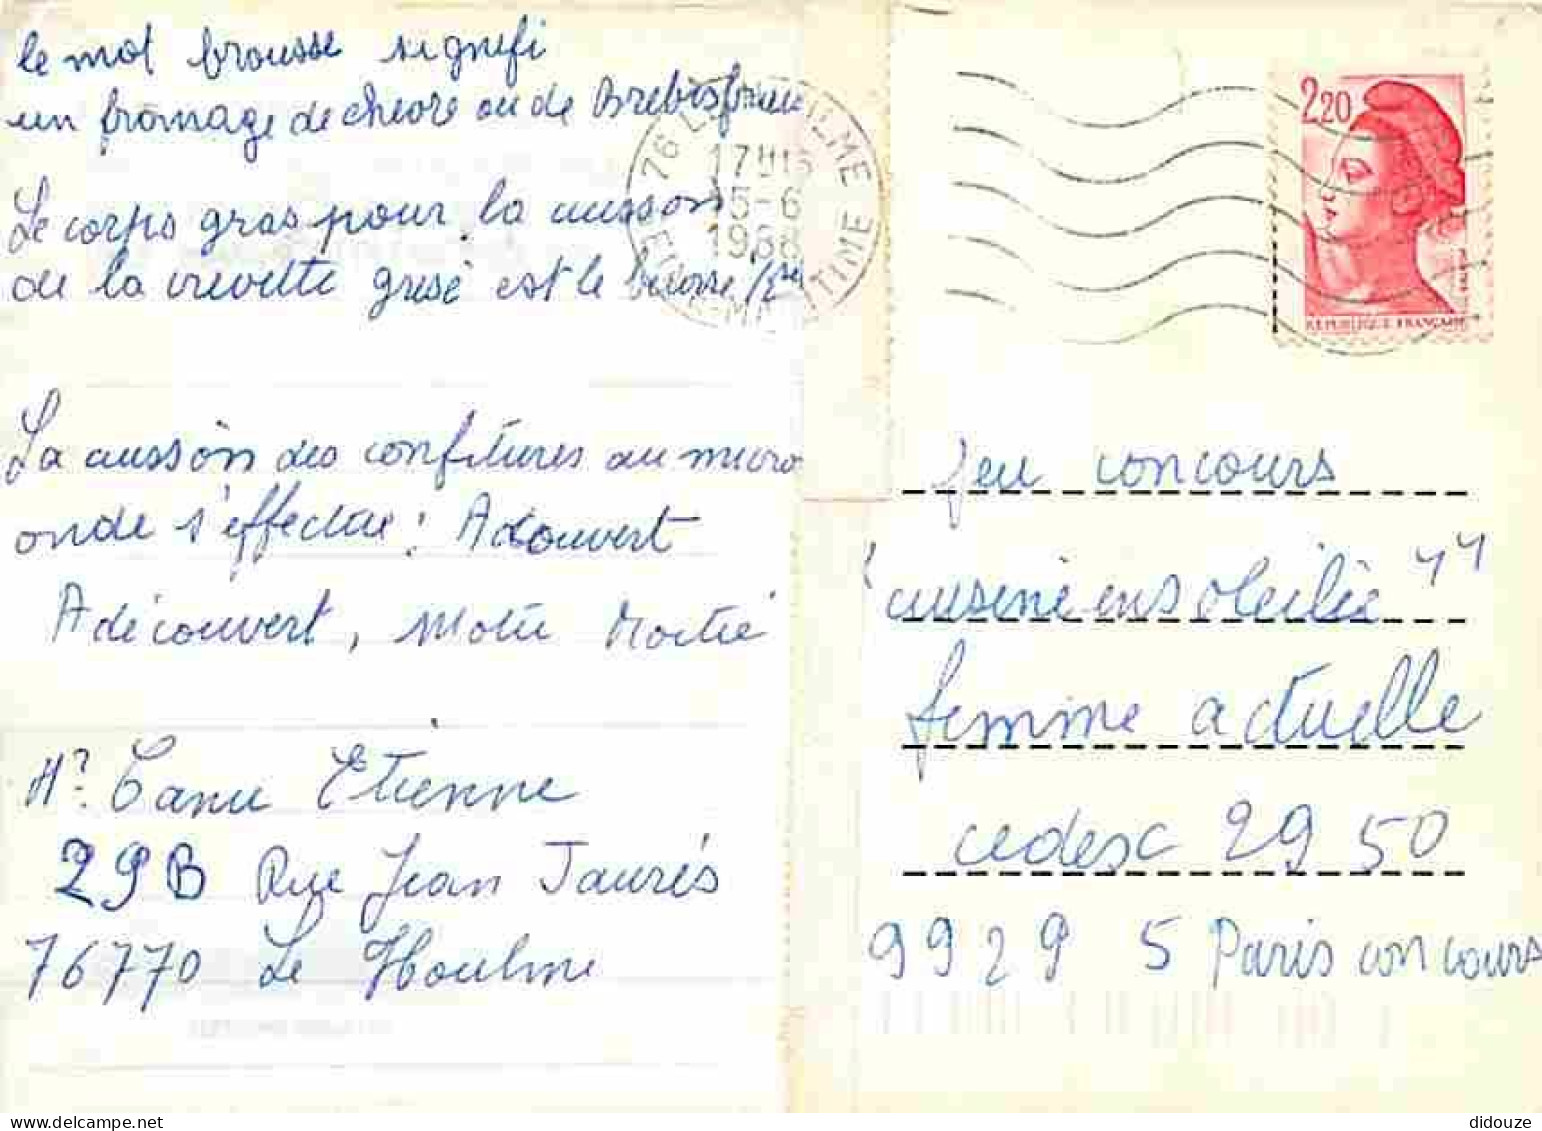 le mot brousse signifi
un fromage de chevre ou de Brebis frais
Le corps gras pour la cuisson
de la crevette grise est le beurre 1/2
La cuisson des confitures au micro
onde s'effectue : Adouvert
A découvert, Moitié
Mr Canu Etienne
29B Rue Jean Jaurés
76770 Le Houlme
76 LE HOULME
17H15
15-6
1988
SEINE-MARITIME
2,20
REPUBLIQUE FRANÇAISE
Jeu concours
"cuisine ensoleilée"
femme actuelle
cedesc 2950
99295 Paris concours
didouze